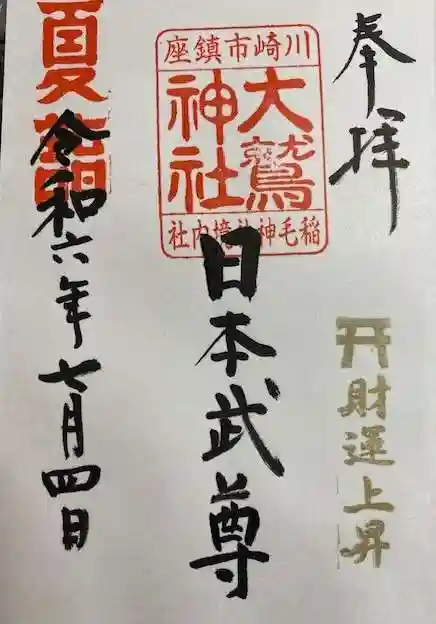 奉拝
川崎市鎮座
大鷲
神社
稲毛神社境内社
日本武尊
財運上昇
夏詣
令和六年七月四日